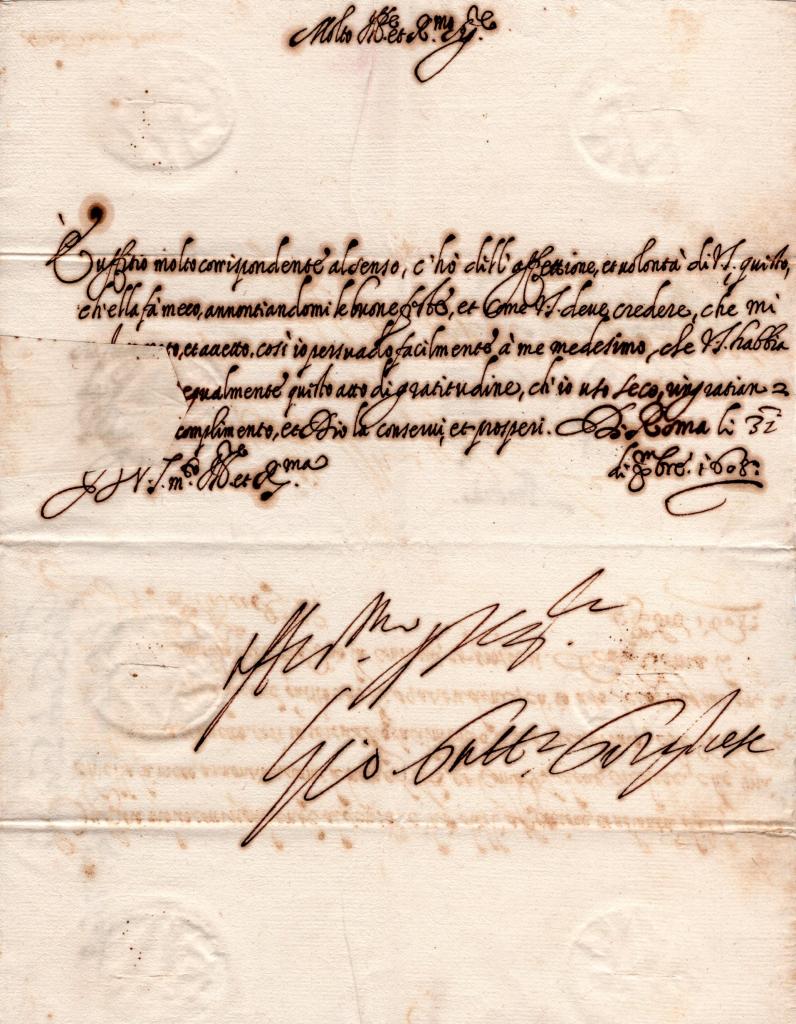 Molto Ill.re et R.mo Sig.re
È uffitio molto corrispondente al senso, c'hò dell'affettione, et volontà di V.S. questo,
ch'ella fà meco, annontiandomi le buone feste, et come V.S. deve credere, che mi
to, et accetto, così io persuado facilmente à me medesimo, che V.S. habbia
egualmente questo atto di gratitudine, ch'io uso seco, in gratian=
complimento, et Dio la conservi, et prosperi. Di Roma li 31
di Xmbre. 1608.
V.S. m.to Ill.re et R.ma
Aff.mo
Gio Batt.a Borghese